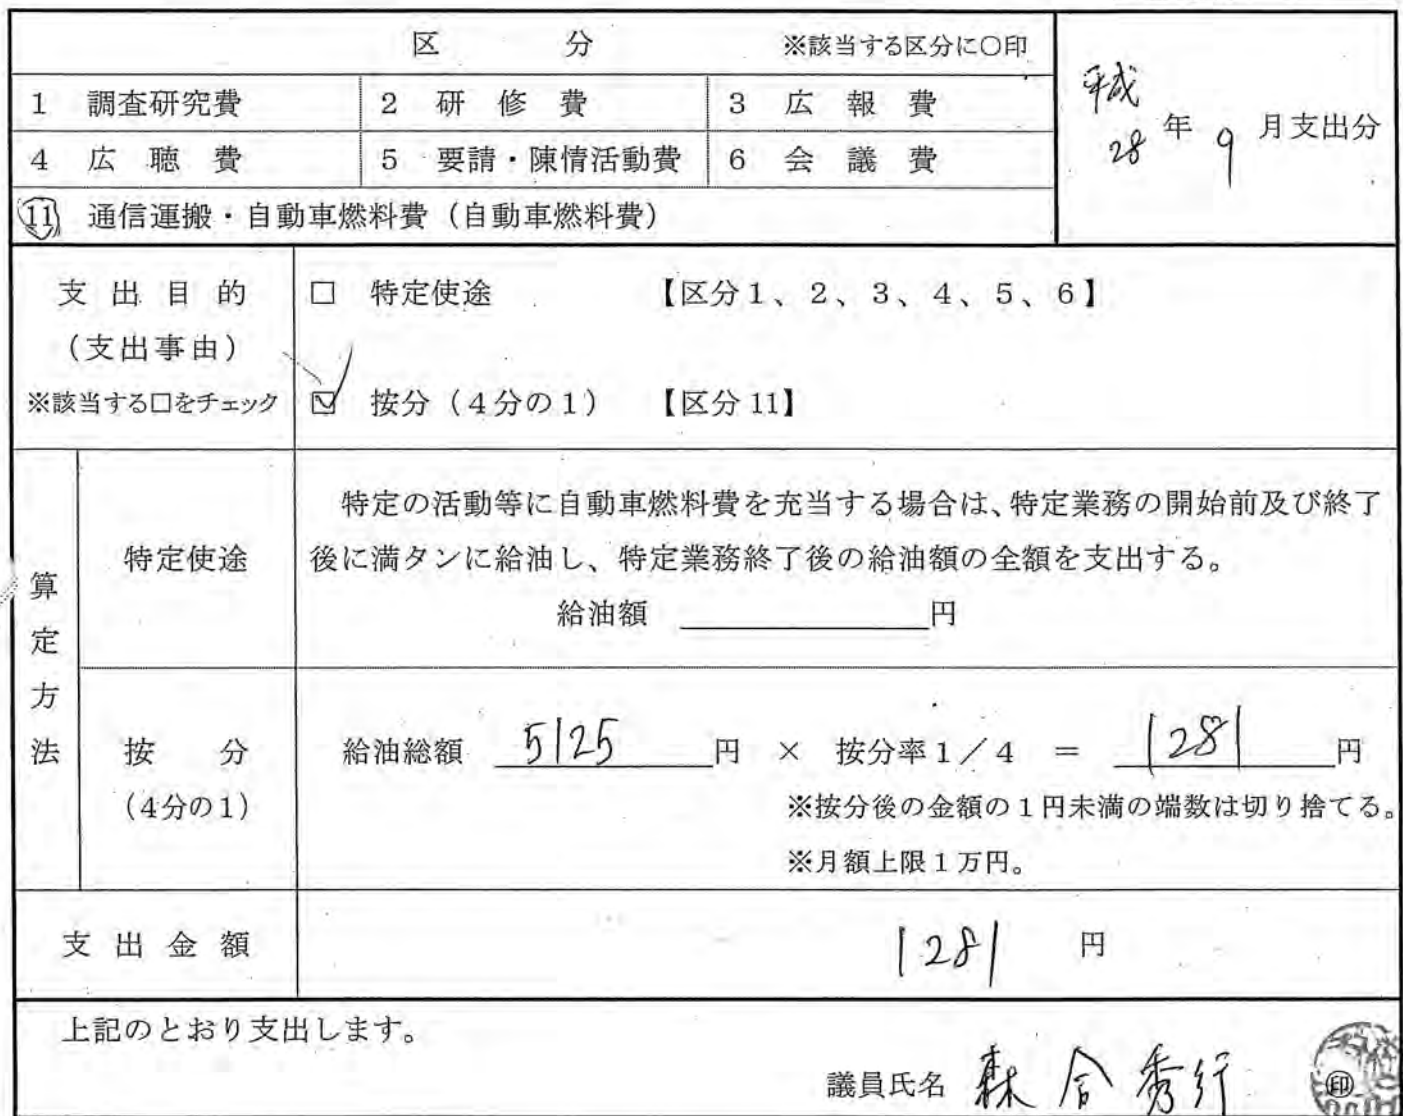 区 分 ※該当する区分に○印
1 調査研究費 2 研修費 3 広報費
平成28年9月支出分
4 広聴費 5 要請・陳情活動費 6 会議費
11 通信運搬・自動車燃料費(自動車燃料費)
支出目的 □ 特定使途 【区分1、2、3、4、5、6】
(支出事由)
※該当する□をチェック ☑ 按分(4分の1) 【区分11】
算定方法
特定使途
特定の活動等に自動車燃料費を充当する場合は、特定業務の開始前及び終了
後に満タンに給油し、特定業務終了後の給油額の全額を支出する。
給油額 円
按分
(4分の1)
給油総額 5125 円 × 按分率1/4 = 1281 円
※按分後の金額の1円未満の端数は切り捨てる。
※月額上限1万円。
支出金額 1281 円
上記のとおり支出します。
議員氏名 森合秀行 印